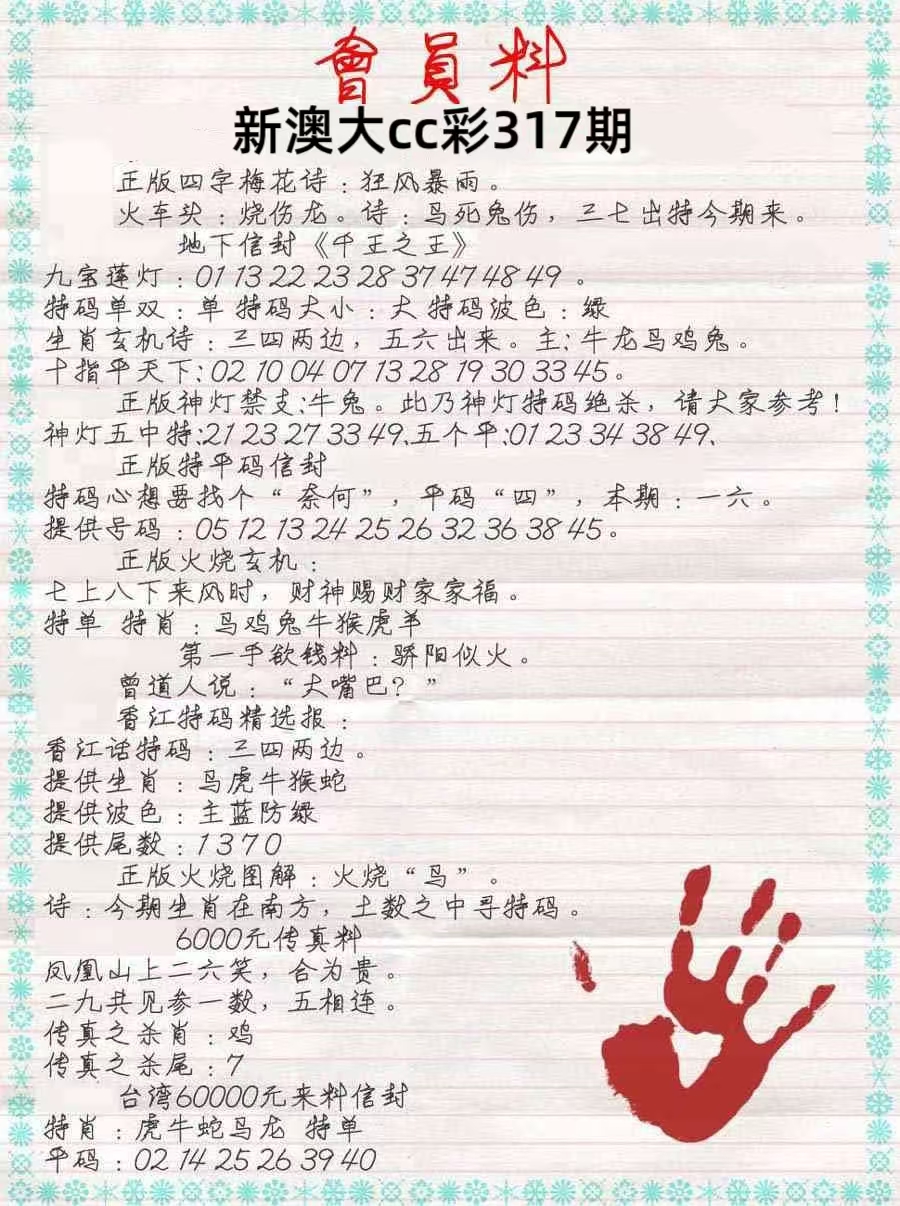 會員料
新澳大cc彩317期
正版四字梅花诗：狂风暴雨。
火车头：烧伤龙。诗：鸟死兔伤，三七出特今期来。
地下信封《千王之王》
九宝莲灯：01 13 22 23 28 37 47 48 49 。
特码单双：单 特码大小：大 特码波色：绿
生肖玄机诗：三四两边，五六出来。主：牛龙鸟鸡兔。
十指平天下：02 10 04 07 13 28 19 30 33 45。
正版神灯禁支：牛兔。此乃神灯特码绝杀，请大家参考！
神灯五中特：21 23 27 33 49、五个平：01 23 34 38 49、
正版特平码信封
特码心想要找个“奈何”，平码“四”，本期：一六。
提供号码：05 12 13 24 25 26 32 36 38 45。
正版火烧玄机：
七上八下来风时，财神赐财家家福。
特单 特肖：鸟鸡兔牛猴虎羊
第一手欲钱料：骄阳似火。
曾道人说：“大嘴巴？”
香江特码精选报：
香江话特码：三四两边。
提供生肖：鸟虎牛猴蛇
提供波色：主蓝防绿
提供尾数：1 3 7 0
正版火烧图解：火烧“鸟”。
诗：今期生肖在南方，土数之中寻特码。
6000元传真料
凤凰山上二六笑，合为贵。
二九共见参一数，五相连。
传真之杀肖：鸡
传真之杀尾：7
台湾60000元来料信封
特肖：虎牛蛇鸟龙 特单
平码：02 14 25 26 39 40